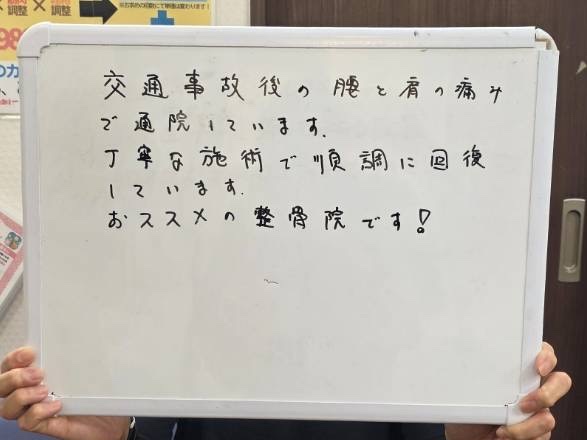 調整
調整
98
のカ
交通事故後の腰と肩の痛み
で通院しています.
丁寧な施術で順調に回復
しています.
おススメの整骨院です!